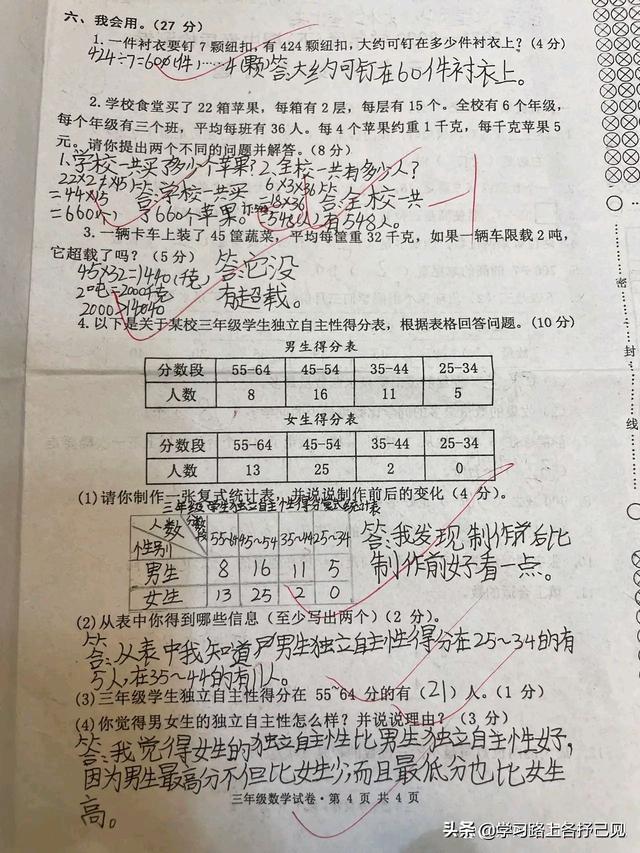 六、我会用。(27 分)
1.一件衬衣要钉 7 颗纽扣,有 424 颗纽扣,大约可钉在多少件衬衣上?(4 分)
424÷7=60(件)……4(颗)答:大约可钉在60件衬衣上。
2.学校食堂买了 22 箱苹果,每箱有 2 层,每层有 15 个。全校有 6 个年级,
每个年级有三个班,平均每班有 36 人。每 4 个苹果约重 1 千克,每千克苹果 5
元。请你提出两个不同的问题并解答。(8 分)
1.学校一共买了多少个苹果? 2.全校一共有多少人?
22×2×15 答:学校一共买 6×3×36 答:全校一共
=44×15 了660个苹果。 =18×36 有548人。
=660(个) =548(人)
3.一辆卡车上装了 45 筐蔬菜,平均每筐重 32 千克,如果一辆车限载 2 吨,
它超载了吗?(5 分)
45×32=1440(千克) 答:它没
2吨=2000千克 有超载。
2000>1440
4.以下是关于某校三年级学生独立自主性得分表,根据表格回答问题。(10 分)
男生得分表
分数段 55-64 45-54 35-44 25-34
人数 8 16 11 5
女生得分表
分数段 55-64 45-54 35-44 25-34
人数 13 25 2 0
(1)请你制作一张复式统计表,并说说制作前后的变化(4 分)。
三年级学生独立自主性得分复式统计表
人数 分数段 性别 55~64 45~54 35~44 25~34
男生 8 16 11 5
女生 13 25 2 0
答:我发现制作后比
制作前好看一点。
(2)从表中你得到哪些信息(至少写出两个)(2 分)。
答:从表中我知道男生独立自主性得分在25~34的有
5人,在35~44的有11人。
(3)三年级学生独立自主性得分在 55~64 分的有(21)人。(1 分)
(4)你觉得男女生的独立自主性怎么样?并说说理由?(3 分)
答:我觉得女生的独立自主性比男生独立自主性好,
因为男生最高分不但比女生少,而且最低分也比女生
高。
三年级数学试卷·第 4 页 共 4 页
密
封
线
头条 @学习路上各抒己见